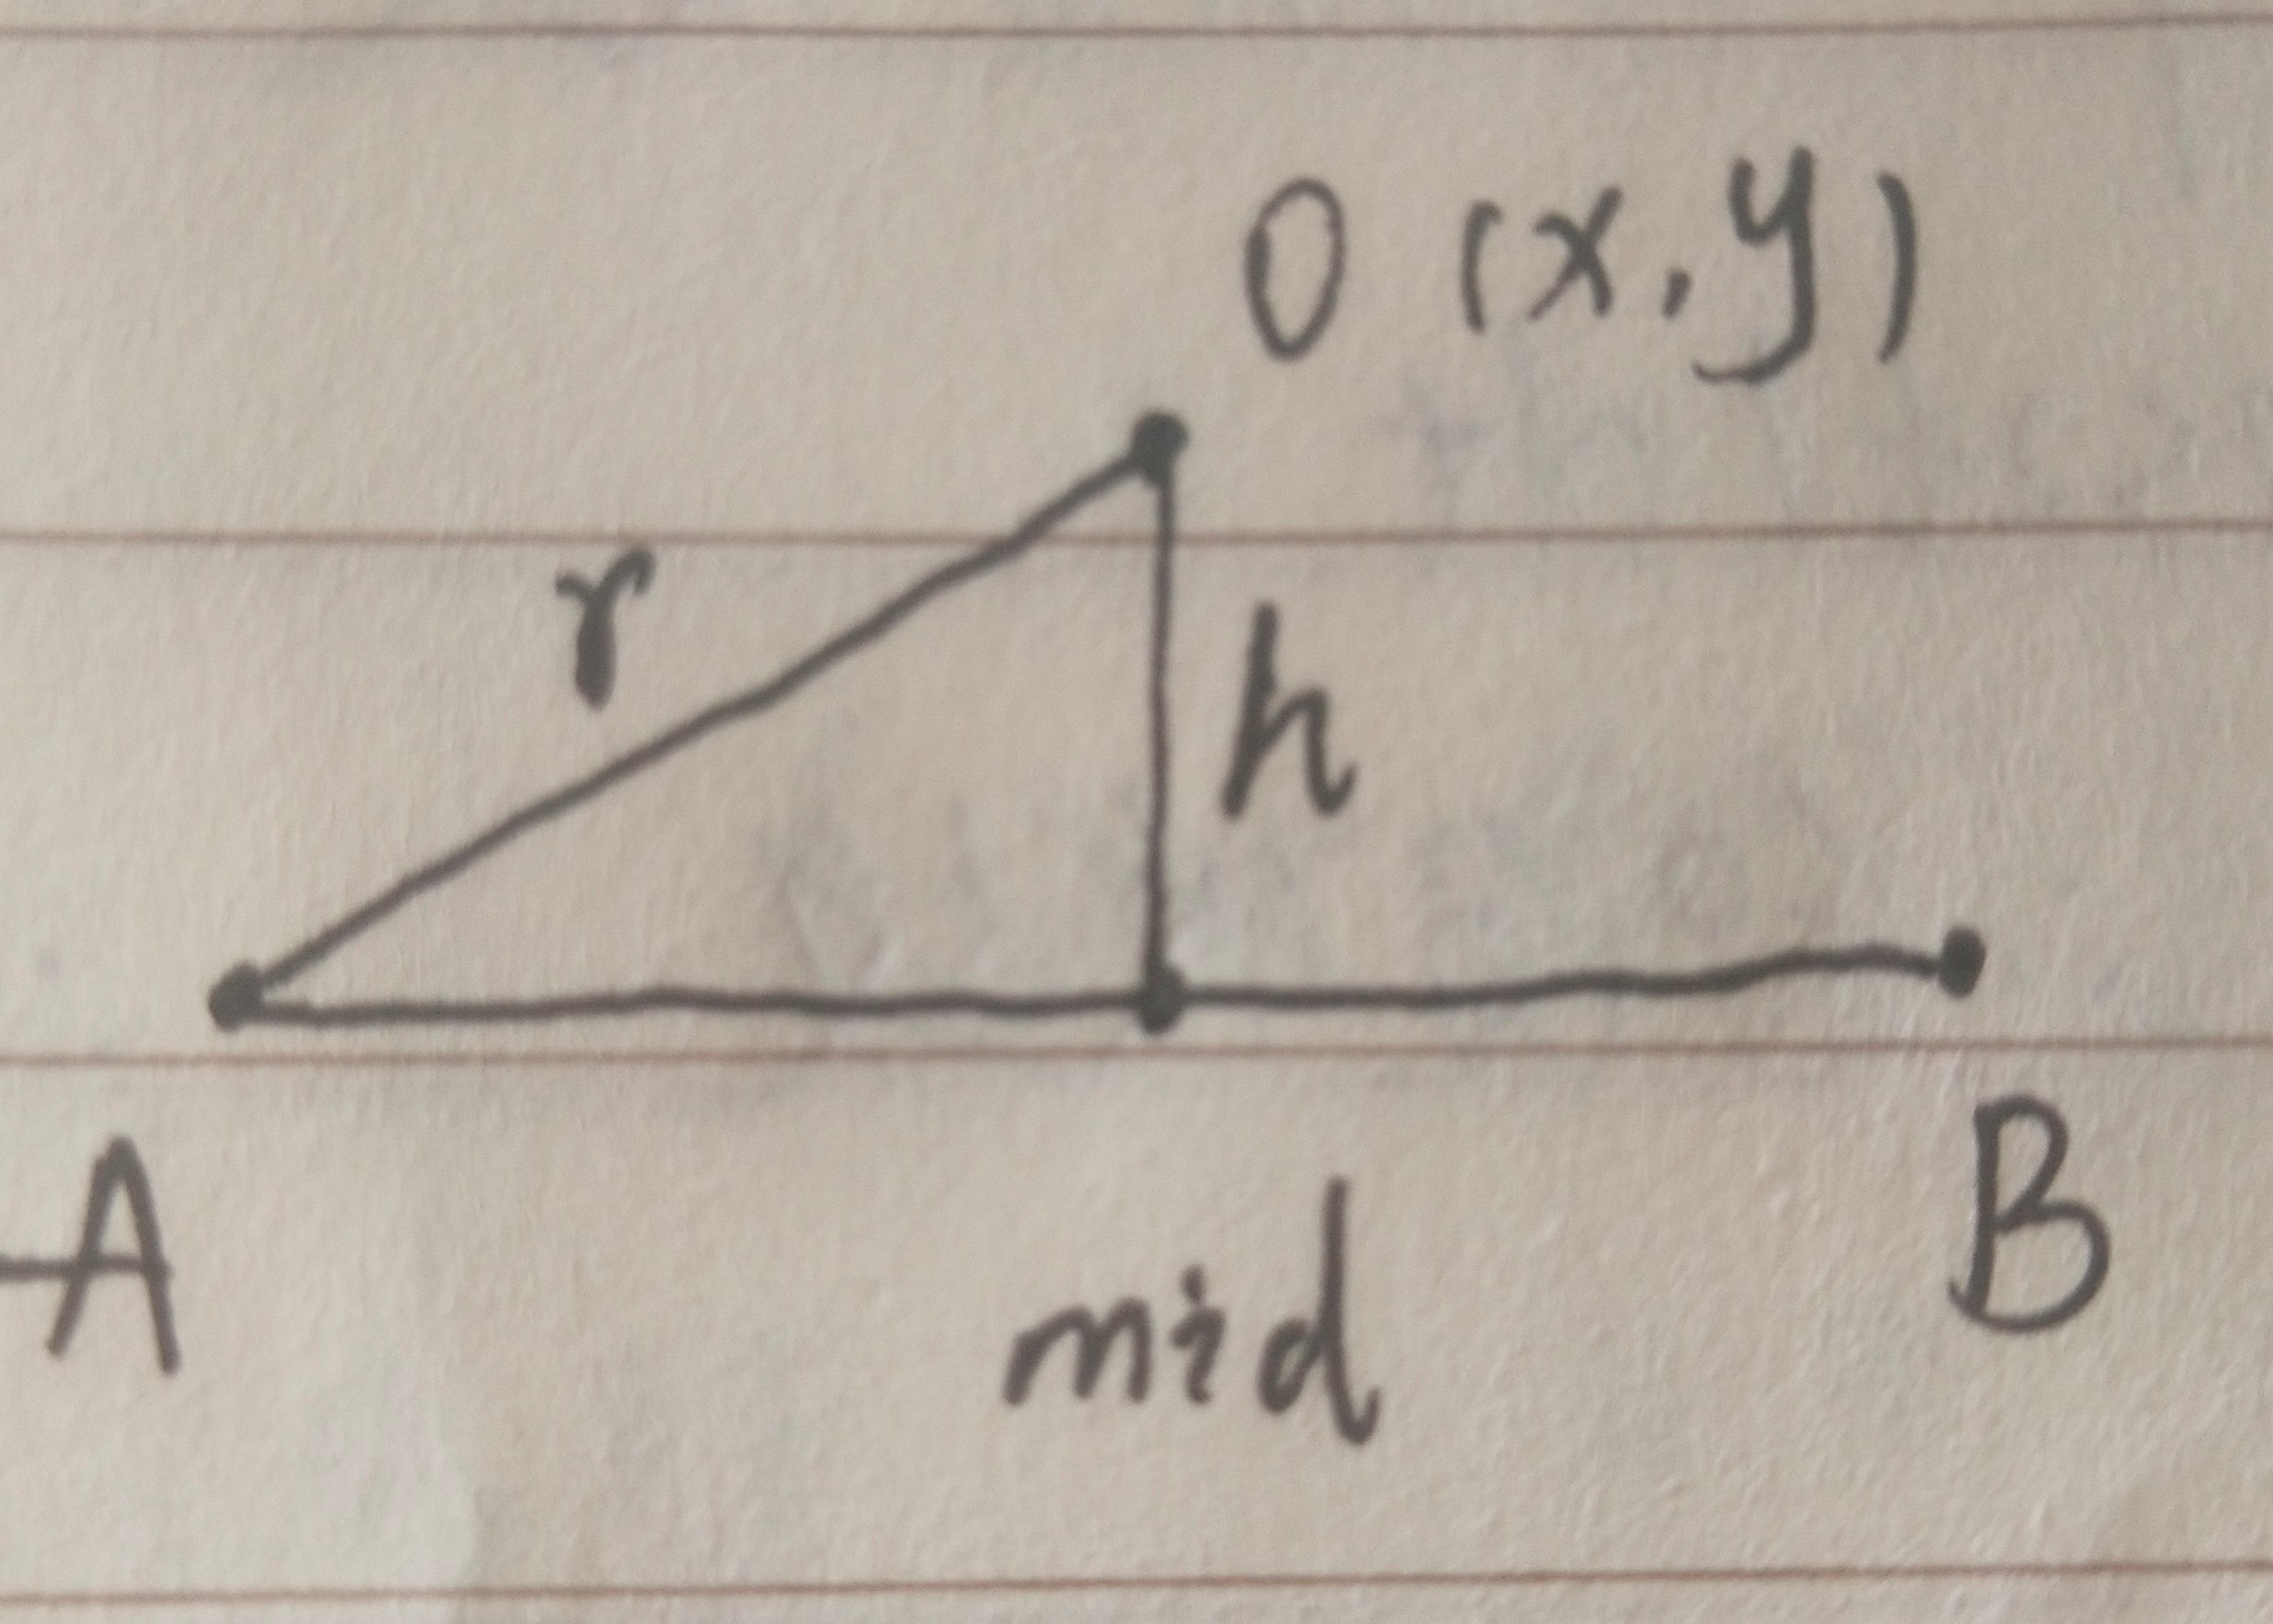 O (x,y)
r
h
A
B
mid